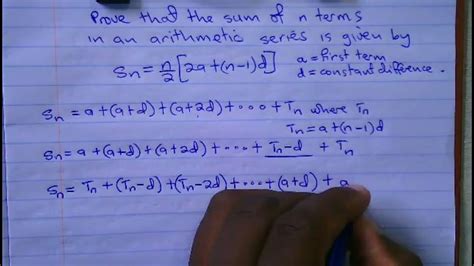 Prove that the sum of n terms
in an arithmetic series is given by
Sn = n/2 [2a+(n-1)d] a = first term
d = constant difference.
Sn = a + (a+d) + (a+2d) + ... + Tn where Tn
Tn = a+(n-1)d
Sn = a + (a+d) + (a+2d) + ... + Tn-d + Tn
Sn = Tn + (Tn-d) + (Tn-2d) + ... + (a+d) + a